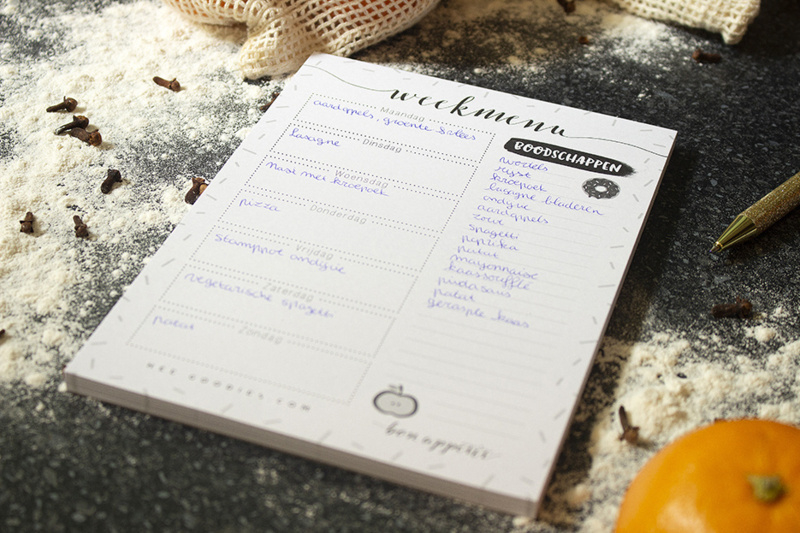 weekmenu
Maandag
aardappels, groente & vlees
Dinsdag
lasagne
Woensdag
nasi met kroepoek
Donderdag
pizza
Vrijdag
stamppot andijvie
Zaterdag
vegetarische spagetti
Zondag
patat
BOODSCHAPPEN
wortels
rijst
kroepoek
lasagne bladeren
andijvie
aardappels
zout
spagetti
paprika
patat
mayonnaise
kaassoufflé
pindasaus
patat
geraspte kaas
bon appétit